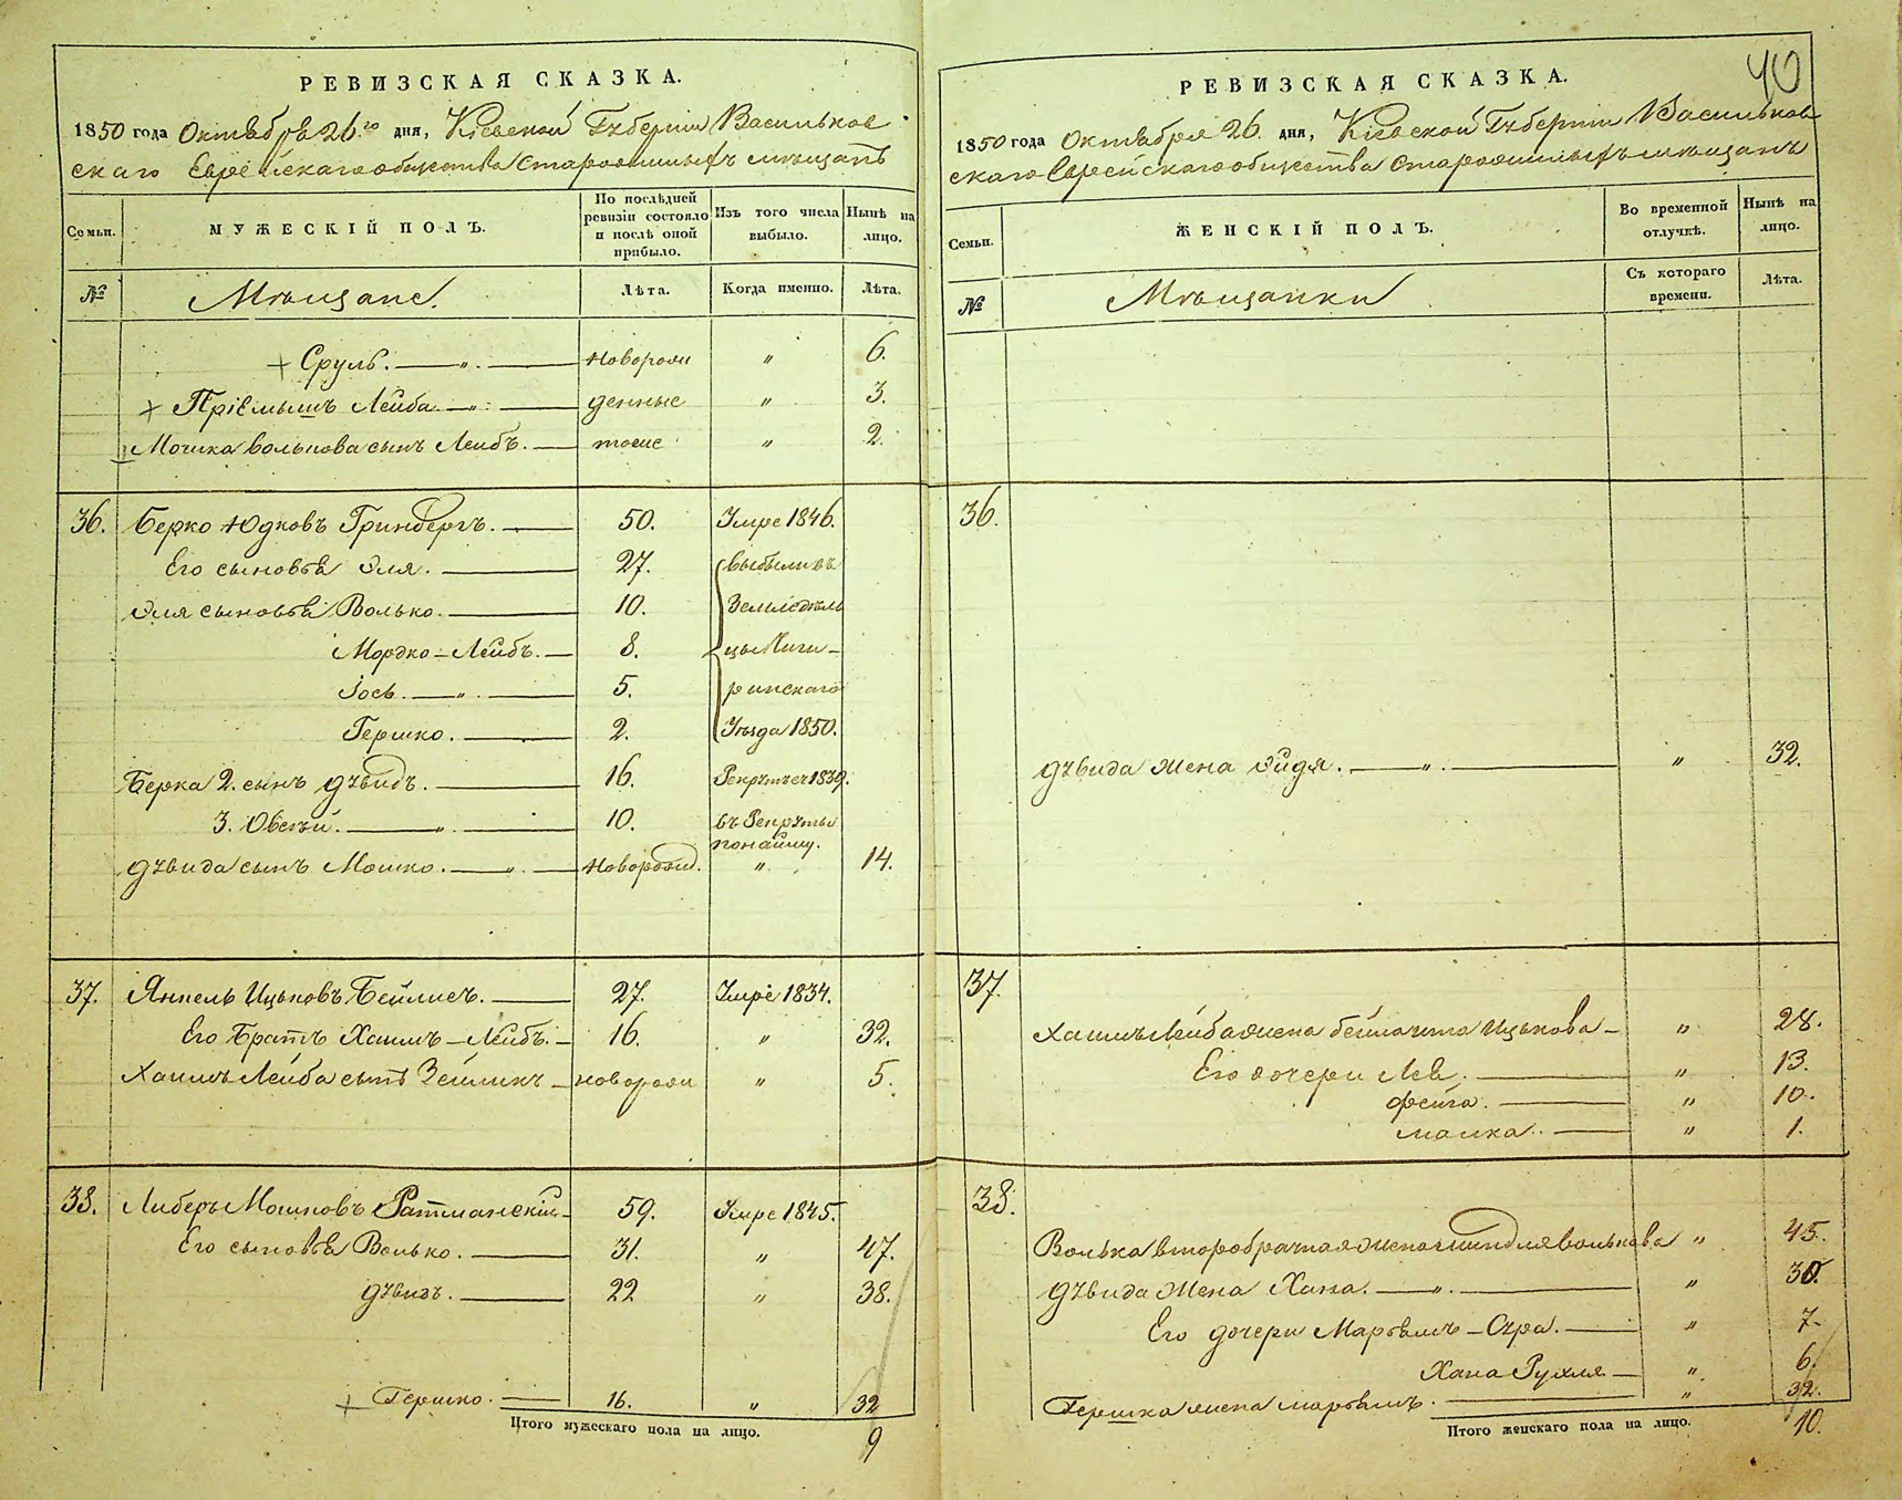 РЕВИЗСКАЯ СКАЗКА.
1850 года Октября 26.го дня, Кіевской Губерніи Васильков
скаго Еврейскаго общества старожилыхъ мѣщанъ
Семьи.
МУЖЕСКІЙ ПОЛЪ.
По послѣдней ревизіи состояло и послѣ оной прибыло.
Изъ того числа выбыло.
Нынѣ на лицо.
№
Мѣщане.
Лѣта.
Когда именно.
Лѣта.
Сруль. — „ — новорож „ 6.
Пріемышъ Лейба — „ — денные „ 3.
Мошка Волькова сынъ Лейбъ. — тоже „ 2.
36. Берко Юдковъ Гринбергъ. — 50. Умре 1846.
Его сыновья Эля. — 27. выбыли въ
Эля сыновья Волько. — 10. Земледѣль
Мордко-Лейбъ. — 8. цы Чиги-
Іось. — „ — 5. ринскаго
Гершко. — 2. Уѣзда 1850.
Берка 2. сынъ Дувидъ. — 16. 1839.
3. Овсѣй. — „ — 10. въ Рекруты
по найму.
Дувида сынъ Мошко. — „ — новорожд. „ 14.
37. Янкель Ицьковъ Бейлисъ. — 27. Умре 1834.
Его Братъ Хаимъ-Лейбъ. — 16. „ 32.
Хаимъ Лейба сынъ Зейликъ — новорож „ 5.
38. Либеръ Мошковъ Ратманскій — 59. Умре 1845.
Его сыновья Волько. — 31. „ 47.
Дувидъ. — 22 „ 38.
Гершко. — 16. „ 32
Итого мужескаго пола на лицо.
9
40
РЕВИЗСКАЯ СКАЗКА.
1850 года Октября 26. дня, Кіевской Губерніи Васильков
скаго Еврейскаго общества старожилыхъ мѣщанъ
Семьи.
ЖЕНСКІЙ ПОЛЪ.
Во временной отлучкѣ.
Нынѣ на лицо.
№
Мѣщанки
Съ котораго времени.
Лѣта.
36.
Дувида жена Эйдя. — „ — „ 32.
37.
Хаимъ Лейба жена Ицькова — „ 28.
Его дочери Леа. — „ 13.
Фейга. — „ 10.
Малка. — „ 1.
38.
Волька второбрачная жена Миндля Волькова „ 45.
Дувида жена Хана. — „ — „ 30.
Его дочери Марьямъ-Сура. — „ 7.
Хана Рухля — „ 6.
Гершка жена Марьямъ. — „ 32.
Итого женскаго пола на лицо.
10.